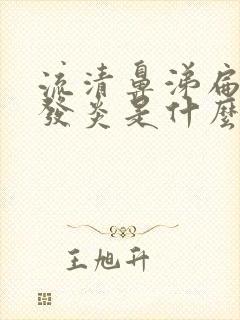 流清鼻涕扁
發炎是什麼
王旭升